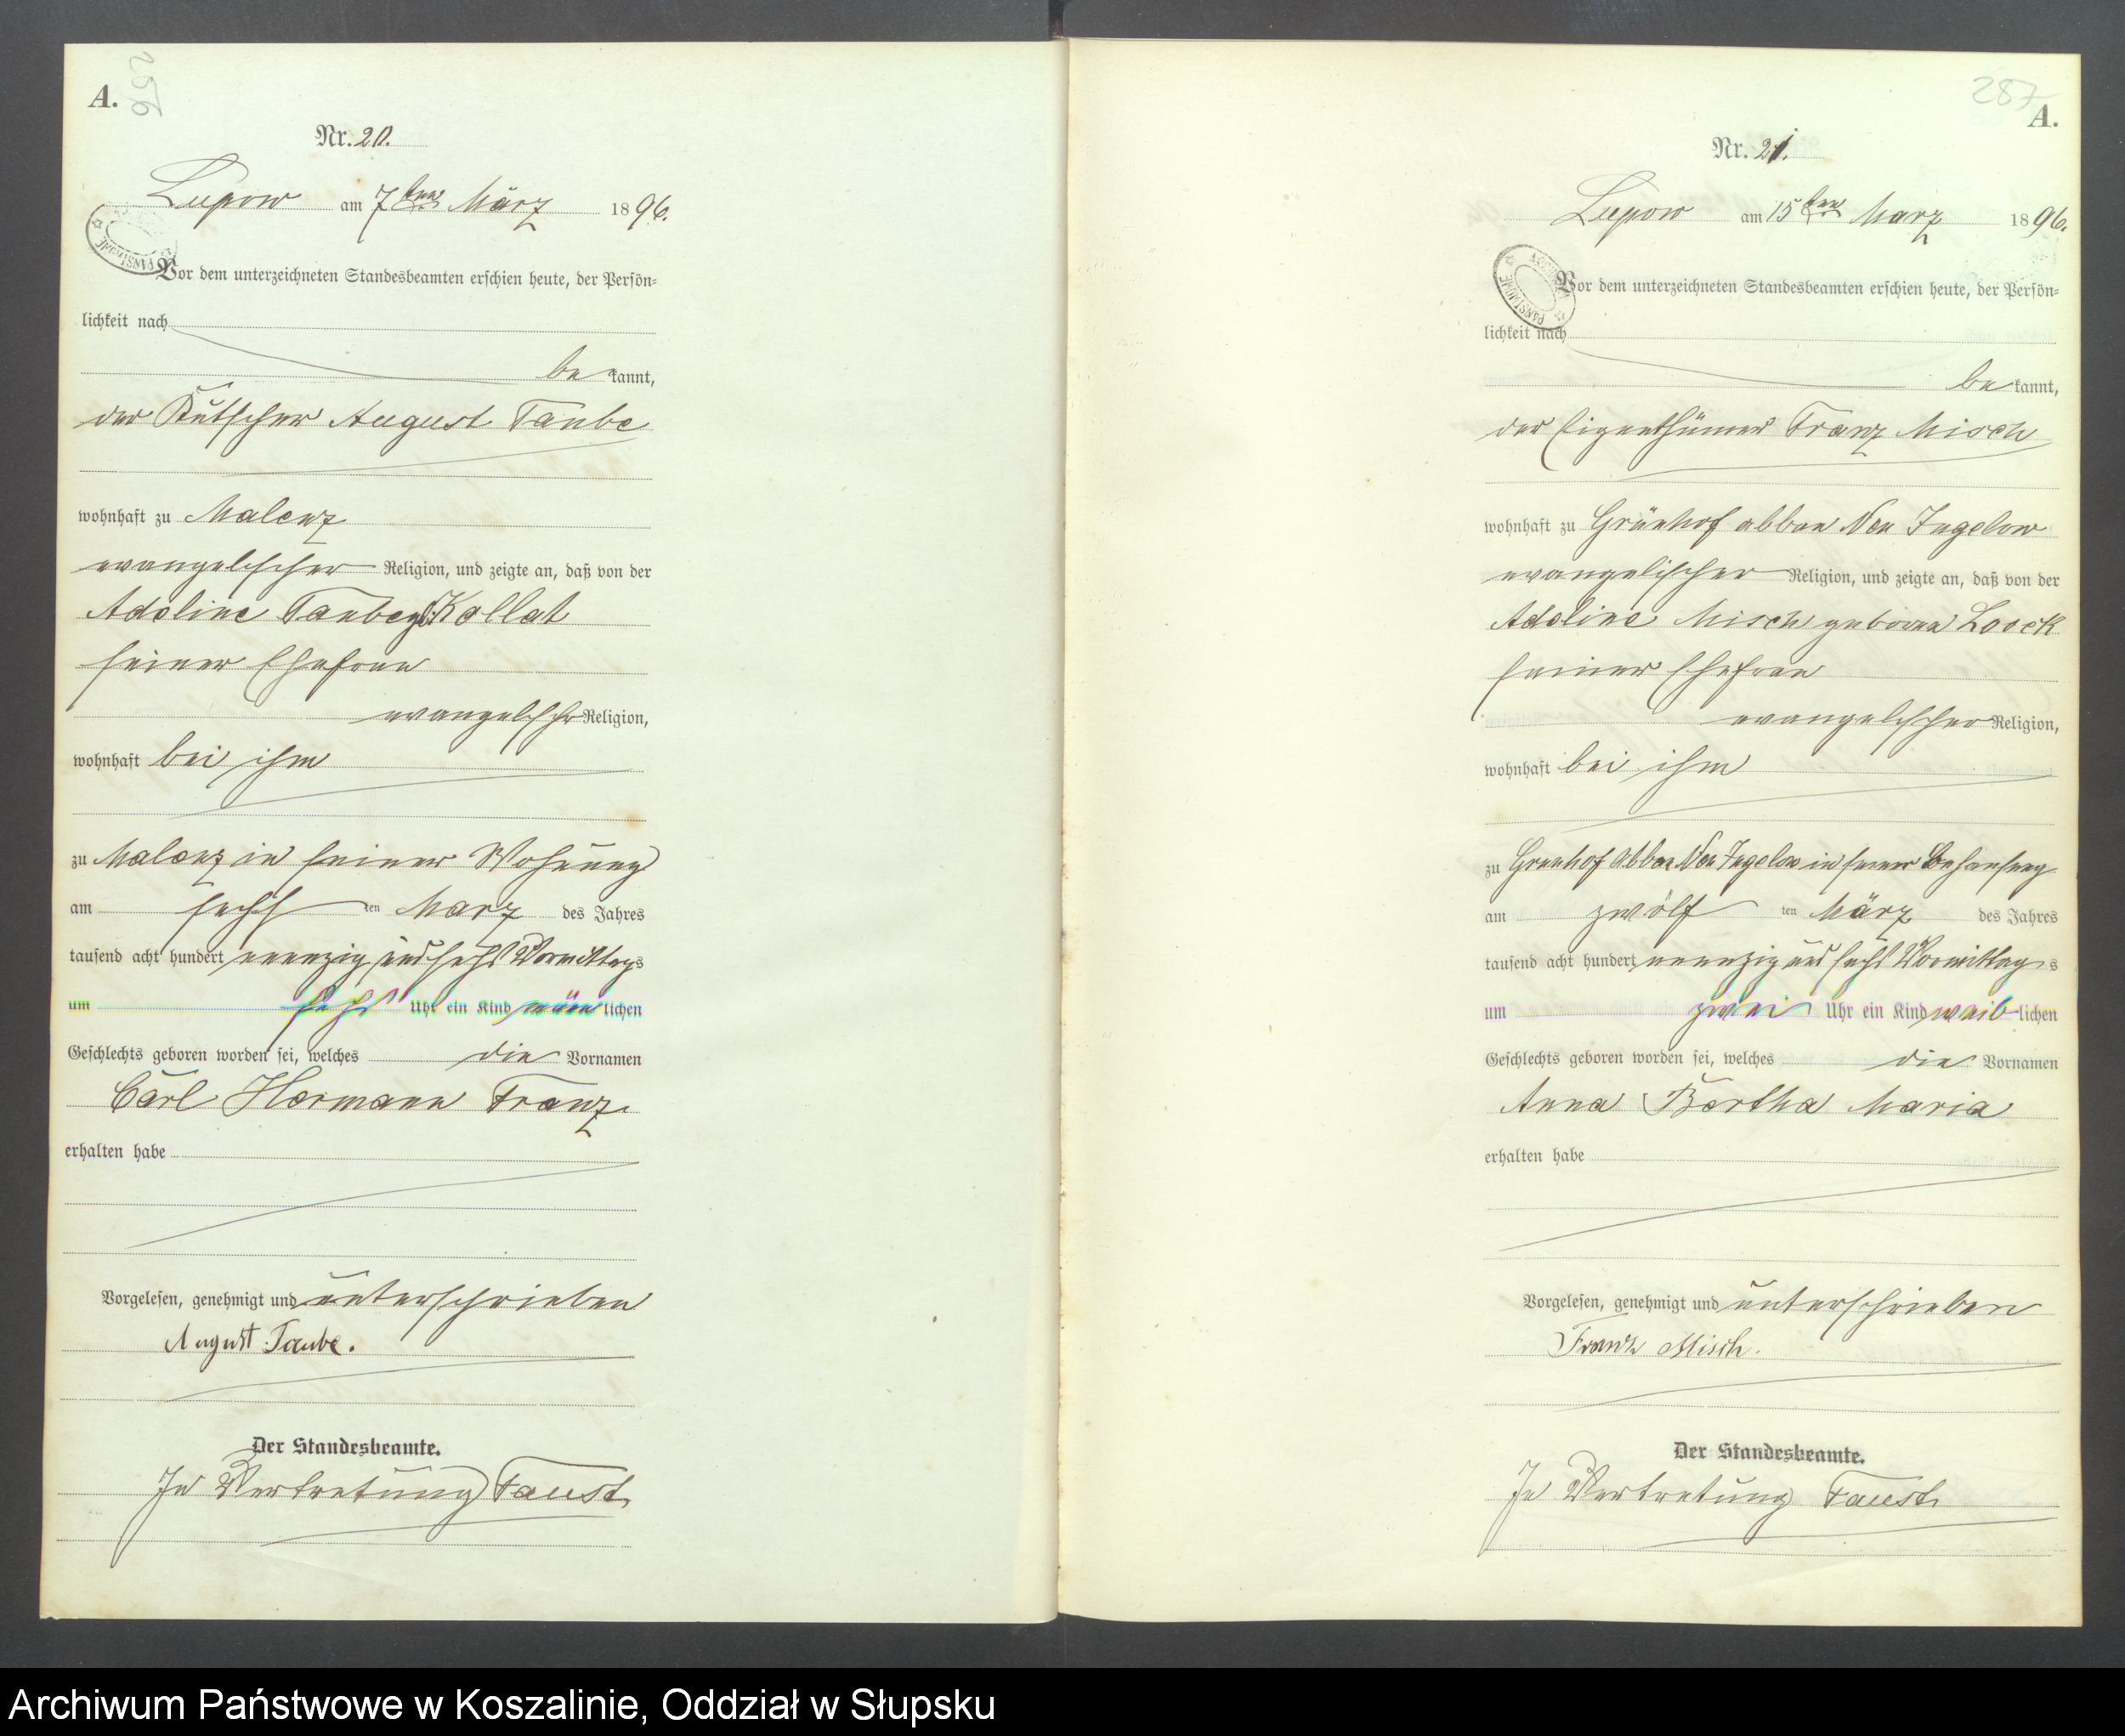 A.
256
Nr. 20.
Lupow am 7ten März 1896.
Vor dem unterzeichneten Standesbeamten erschien heute, der Persön=
lichkeit nach
be kannt,
der Kutscher August Taube
wohnhaft zu Malenz
evangelischer Religion, und zeigte an, daß von der
Adeline Taube geb. Kollat
seiner Ehefrau
evangelischer Religion,
wohnhaft bei ihm
zu Malenz in seiner Wohnung
am sechs ten März des Jahres
tausend acht hundert neunzig und sechs Vormittags
um sechs Uhr ein Kind männlichen
Geschlechts geboren worden sei, welches die Vornamen
Carl Hermann Franz
erhalten habe
Vorgelesen, genehmigt und unterschrieben
August Taube.
Der Standesbeamte.
In Vertretung Faust
287
A.
Nr. 21.
Lupow am 15ten März 1896.
Vor dem unterzeichneten Standesbeamten erschien heute, der Persön=
lichkeit nach
be kannt,
der Eigenthümer Franz Misch
wohnhaft zu Grünhof abbau Neu Jugelow
evangelischer Religion, und zeigte an, daß von der
Adeline Misch geborne Loock
seiner Ehefrau
evangelischer Religion,
wohnhaft bei ihm
zu Grünhof Abbau Neu Jugelow in seiner Behausung
am zwölf ten März des Jahres
tausend acht hundert neunzig und sechs Vormittags
um zwei Uhr ein Kind weiblichen
Geschlechts geboren worden sei, welches die Vornamen
Anna Bertha Maria
erhalten habe
Vorgelesen, genehmigt und unterschrieben
Franz Misch.
Der Standesbeamte.
In Vertretung Faust
Archiwum Państwowe w Koszalinie, Oddział w Słupsku